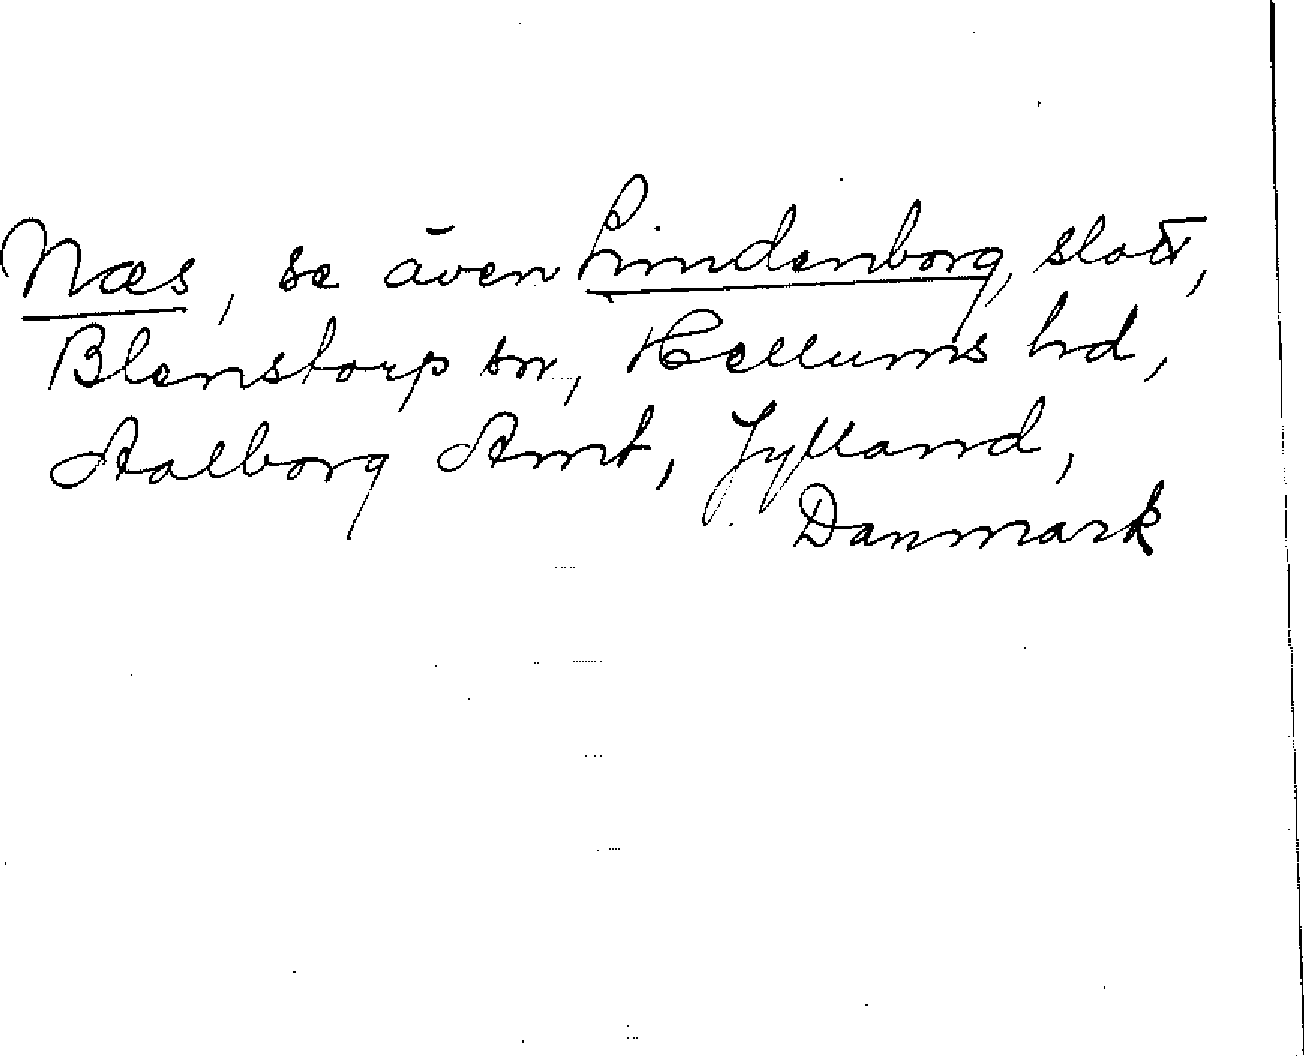 Næs, se även Lindenborg, slott,
Blenstorp sn, Hellums hd,
Aalborg Amt, Jylland,
Danmark